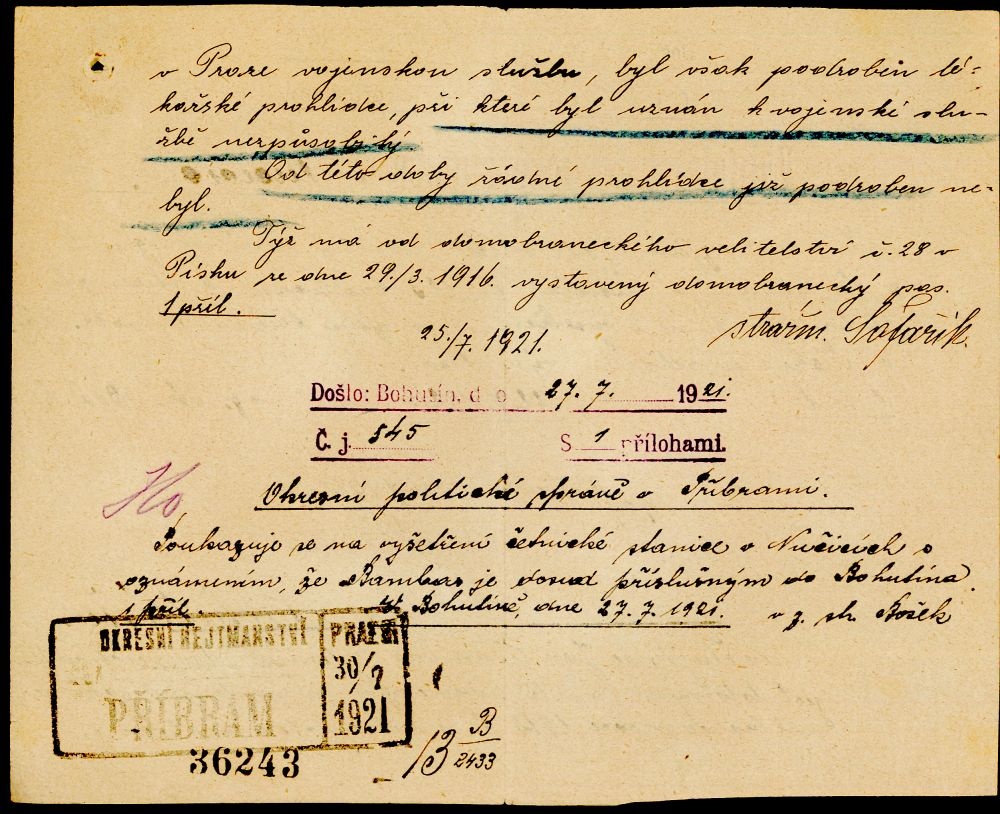 v Praze vojenskou službu, byl však podroben lé-
kařské prohlídce, při které byl uznán k vojenské slu-
žbě nezpůsobilý
Od této doby řádné prohlídce již podroben ne-
byl.
Týž má od domobraneckého velitelství č. 28 v
Písku ze dne 29./3. 1916. vystavený domobranecký pas.
1 příl.
25./7. 1921.
stražm. Šafařík.
Došlo: Bohutín, dno 27. 7. 1921.
Č. j. 545 S 1 přílohami.
Okresní politické správě v Příbrami.
Poukazuje se na vyšetření četnické stanice v Nučicích s
oznámením, že Bambas je dosud příslušným do Bohutína.
1 příl. V Bohutíně, dne 27. 7. 1921. v z. st. Bošek
OKRESNÍ HEJTMANSTVÍ
PŘÍBRAM
30/7
1921
36243
13 B
2433